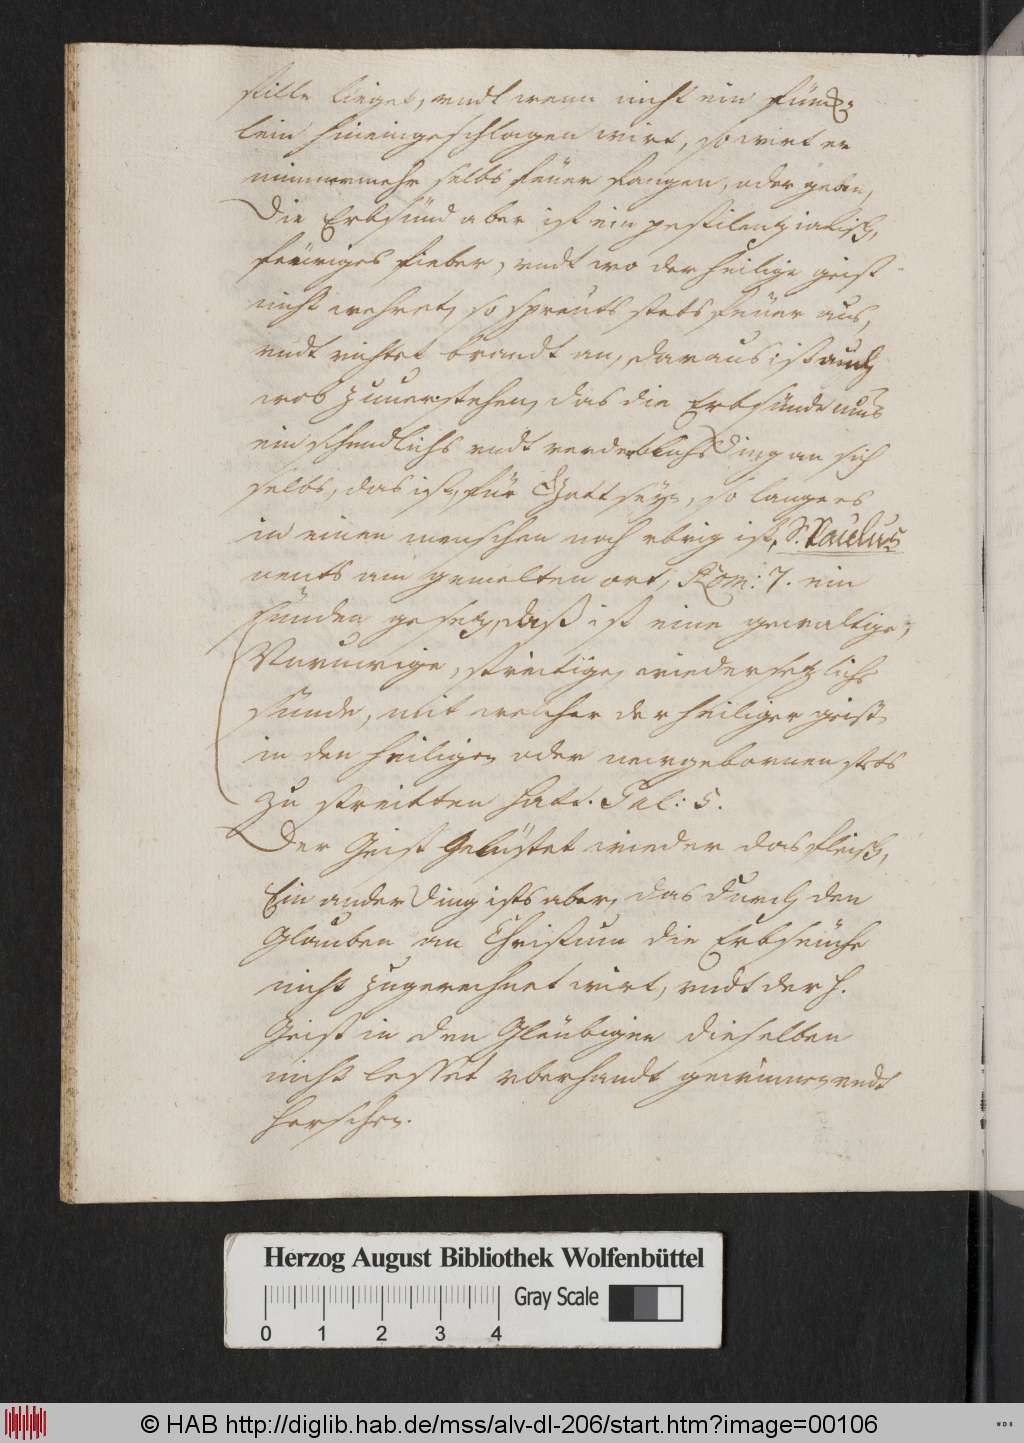 stille lieget, undt wenn nicht ein füncк-
lein hineingeschlagen wirt, so wirt er
nimmermehr selbs feüer fangen, oder geben,
Die Erbsünd aber ist ein pestilenzialisch,
feüriges fieber, undt wo der heilige geist
nicht wehret, so spreüts stets feüer aus,
undt richtet brandt an, daraus ist auch
wol zuuerstehen, das die Erbsünde mus
ein schendlichs undt verderblichs Ding an sich
selbs, das ist, für Gott sey, so lange es
in einen menschen noch vbrig ist, S. Paulus
nents am gemelten ort, Rom: 7. ein
sünden gesetz, daß ist eine gewaltige,
Vnruwige, streitige, wiedersetzliche
sünde, mit welcher der heiliger geist
in den heiligen oder neugebornen stets
zu streitten hatt. Gal: 5.
Der Geist Gelüstet wieder das fleisch,
Ein ander Ding ists aber, das durch den
Glauben an Christum die Erbseüche
nicht zugerechnet wirt, undt der h.
Geist in den Gleübigen dieselben
nicht lesset vberhandt gewinnen undt
herschen.
Herzog August Bibliothek Wolfenbüttel
Gray Scale
0 1 2 3 4
© HAB http://diglib.hab.de/mss/alv-dl-206/start.htm?image=00106